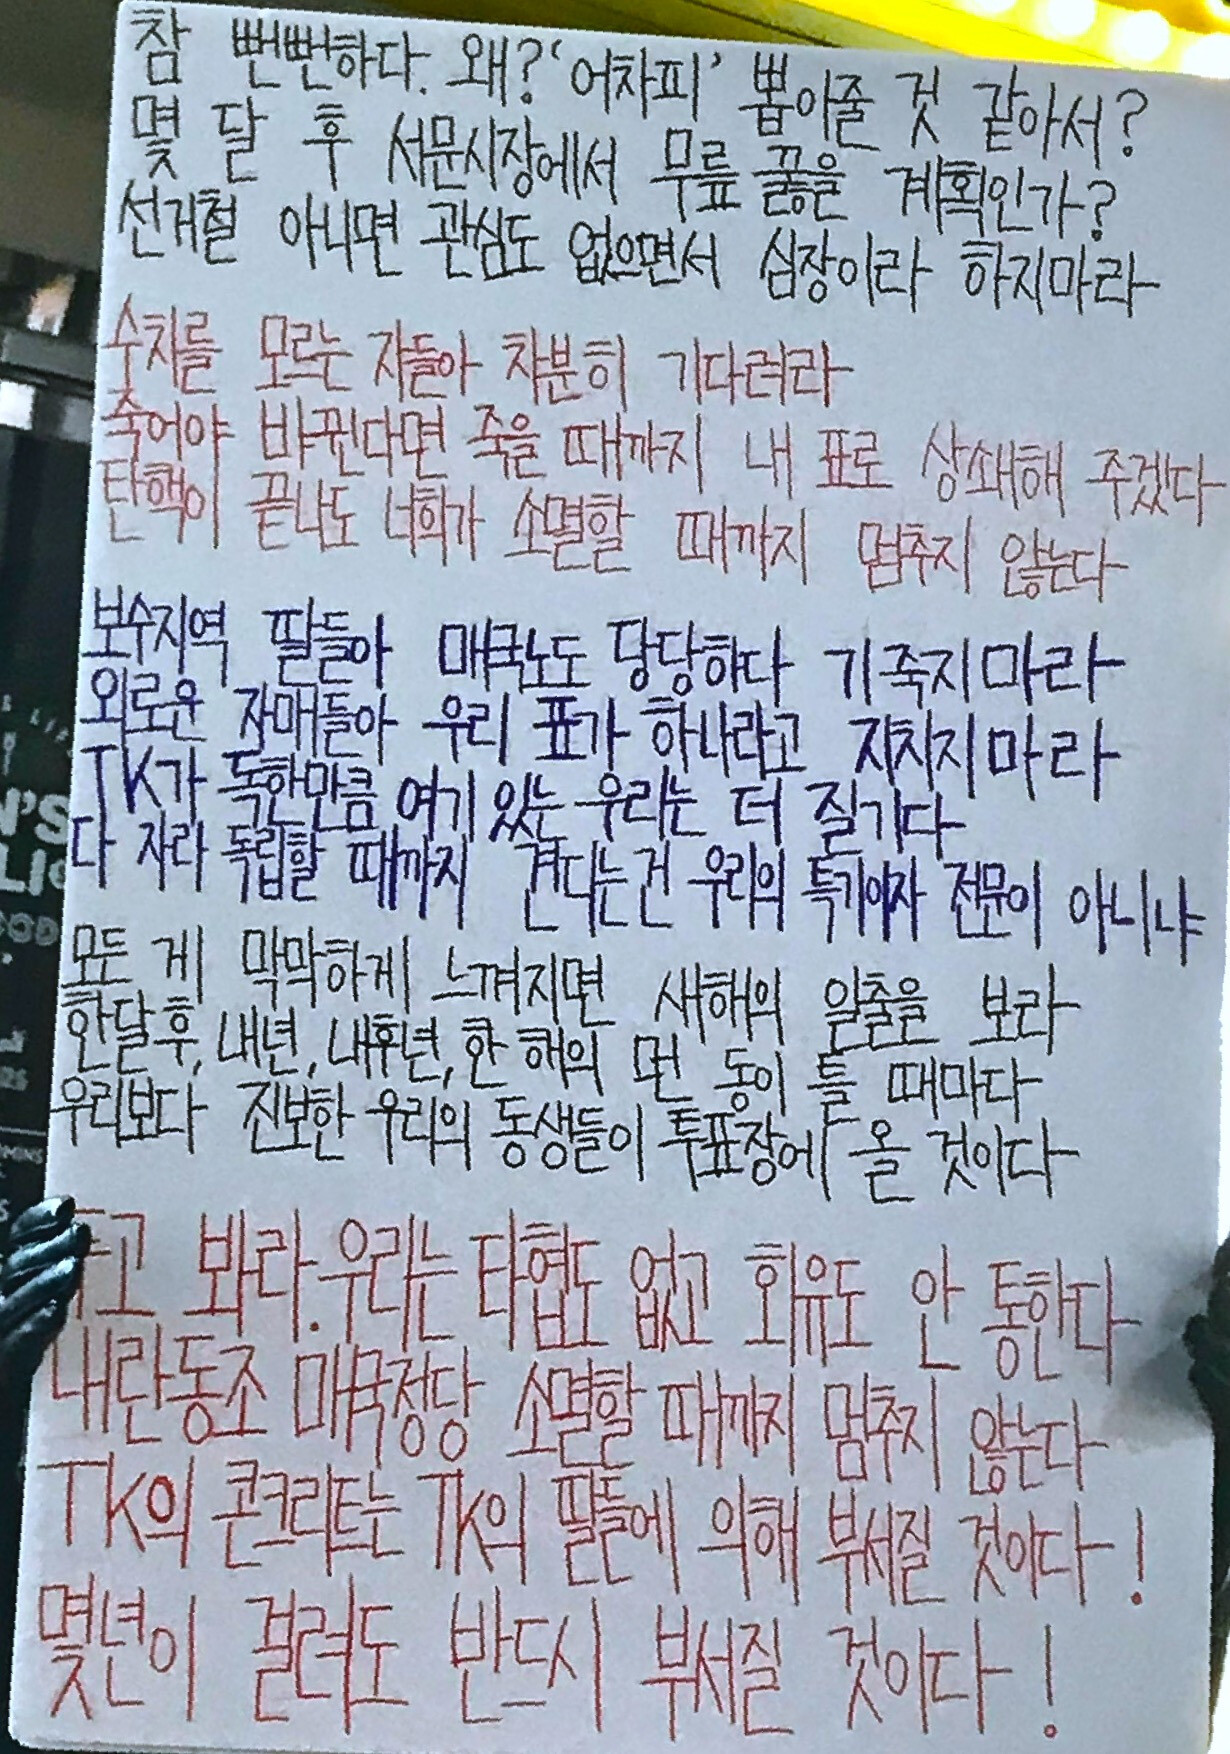 참 뻔뻔하다. 왜? '어차피' 뽑아줄 것 같아서?
몇 달 후 서문시장에서 무릎 꿇을 계획인가?
선거철 아니면 관심도 없으면서 심장이라 하지마라
수치를 모르는 자들아 차분히 기다려라
죽어야 바뀐다면 죽을 때까지 내 표로 상쇄해 주겠다
탄핵이 끝나도 너희가 소멸할 때까지 멈추지 않는다
보수지역 딸들아 매국노도 당당하다 기죽지마라
외로운 자매들아 우리 표가 하나라고 지치지마라
TK가 독한만큼 여기 있는 우리는 더 질기다
다 자라 독립할 때까지 견디는건 우리의 특기이자 전문이 아니냐
모든 게 막막하게 느껴지면 새해의 일출을 보라
한달후, 내년, 내후년, 한 해의 먼 동이 틀 때마다
우리보다 진보한 우리의 동생들이 투표장에 올 것이다
봐라. 우리는 타협도 없고 회유도 안 통한다
내란동조 매국정당 소멸할 때까지 멈추지 않는다
TK의 콘크리트는 TK의 딸들에 의해 부서질 것이다!
몇년이 걸려도 반드시 부서질 것이다!